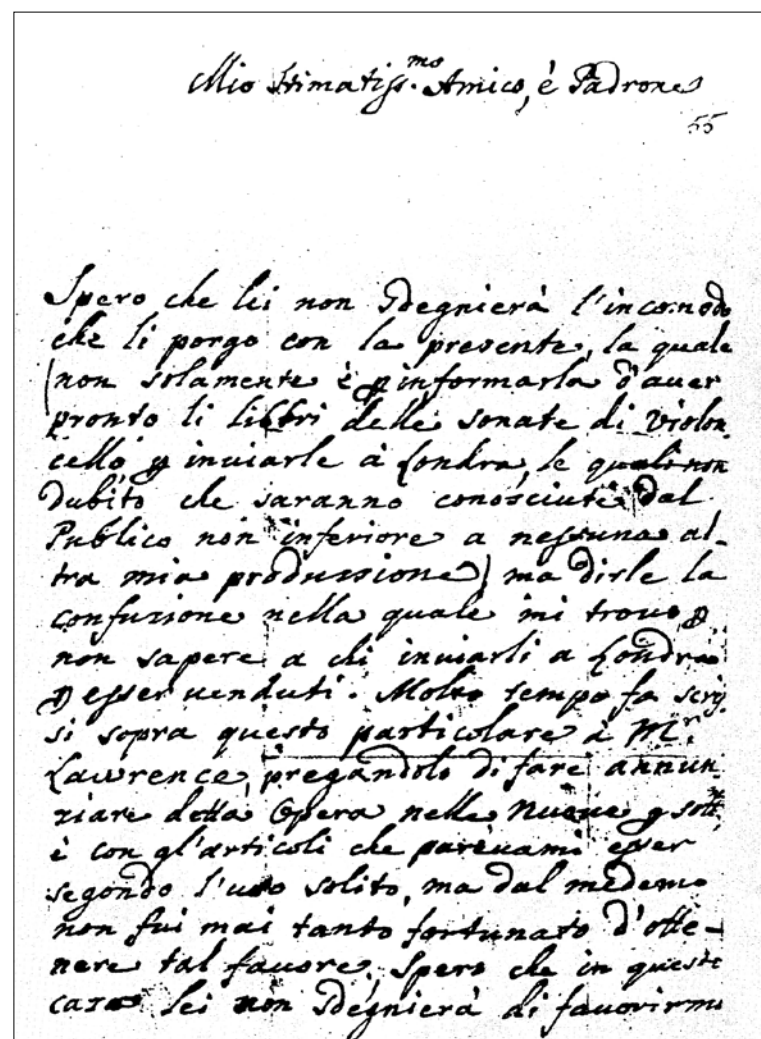 Mio Stimatiss.mo Amico, è Padrone
55
Spero che lei non sdegnierà l'incomodo
che li porgo con la presente, la quale
(non solamente è p informarla d'aver
pronto li libbri delle sonate di Violon
cello, p inviarle à Londra, le quali non
dubito che saranno conosciute dal
Publico non inferiore a nessuna al-
tra mia produssione) ma dirle la
confuzione nella quale mi trovo p
non sapere a chi inviarli a Londra
p esser venduti. Molto tempo fa scris
si sopra questo particolare à Mr.
Lawrence, pregandolo di fare annun
ziare detta Opera nelle Nuove p
è con gl'articoli che parevami esser
segondo l'uso solito, ma dal medemo
non fui mai tanto fortunato d'otte-
nere tal favore. Spero che in questo
caso lei non sdegnierà di favorirmi